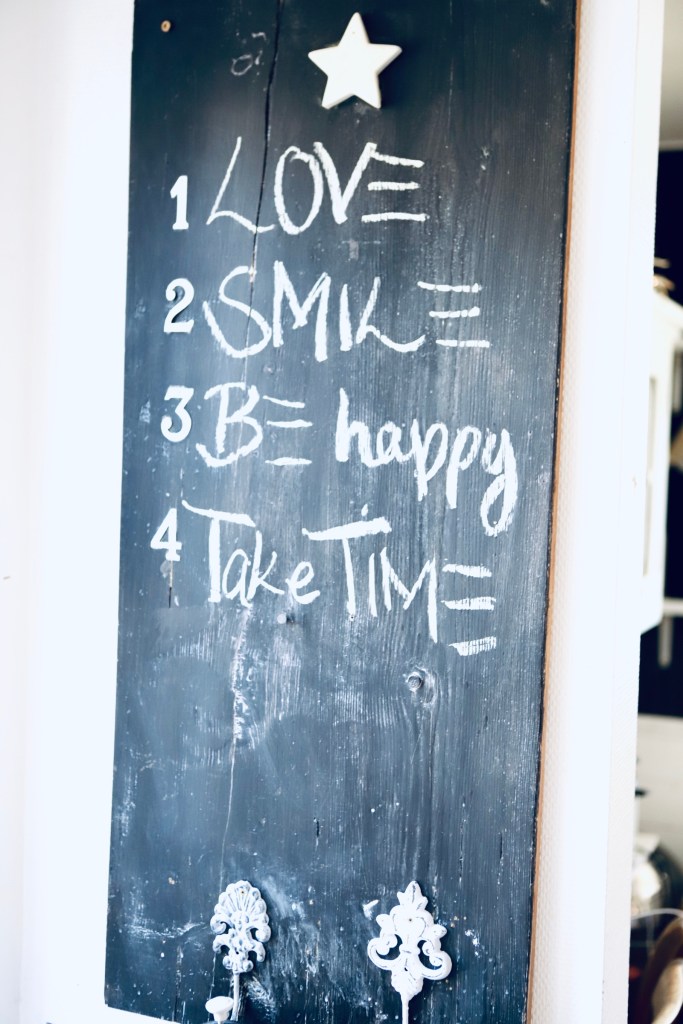 1 LOVE
2 SMILE
3 BE happy
4 Take TIME